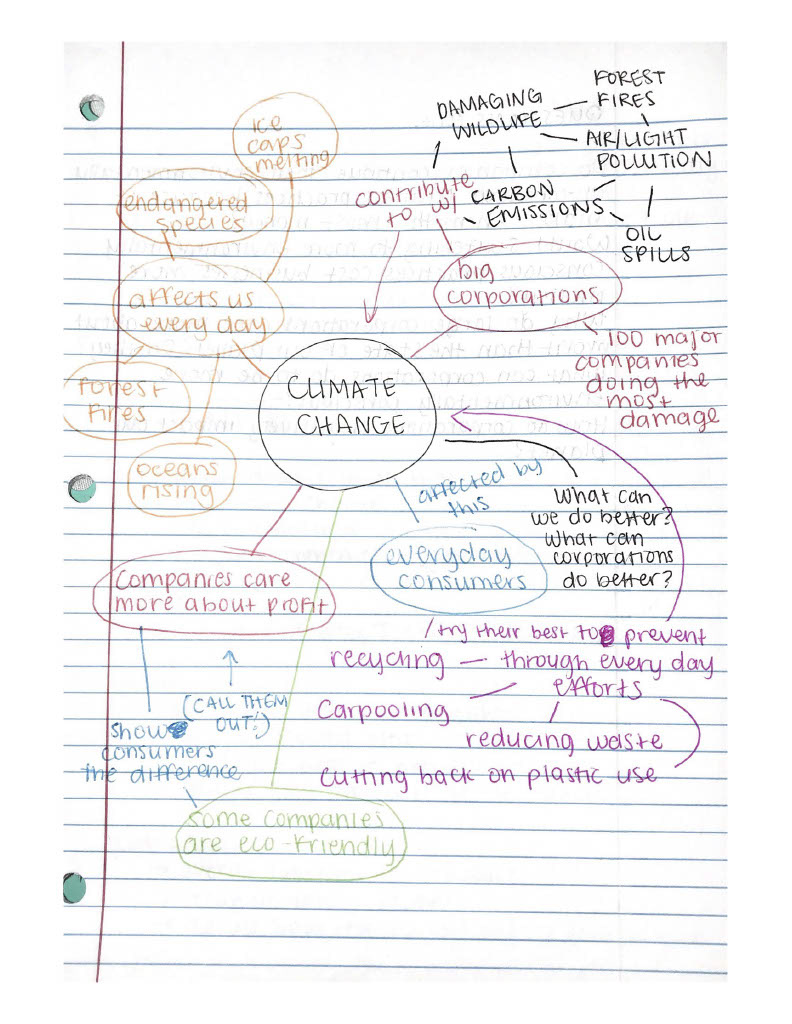 ice
caps
melting
endangered
species
affects us
every day
forest
fires
oceans
rising
DAMAGING
WILDLIFE
FOREST
FIRES
AIR/LIGHT
POLLUTION
CARBON
EMISSIONS
OIL
SPILLS
contribute
to w/
big
corporations
100 major
companies
doing the
most
damage
CLIMATE
CHANGE
affected by
this
everyday
consumers
What can
we do better?
What can
corporations
do better?
Companies care
more about profit
(CALL THEM
OUT!)
show
consumers
the difference
some companies
are eco-friendly
try their best to prevent
recycling — through every day
efforts
Carpooling
reducing waste
cutting back on plastic use